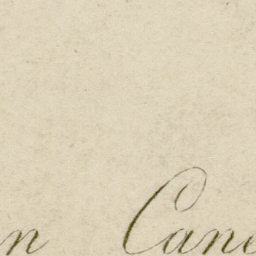 n Cane